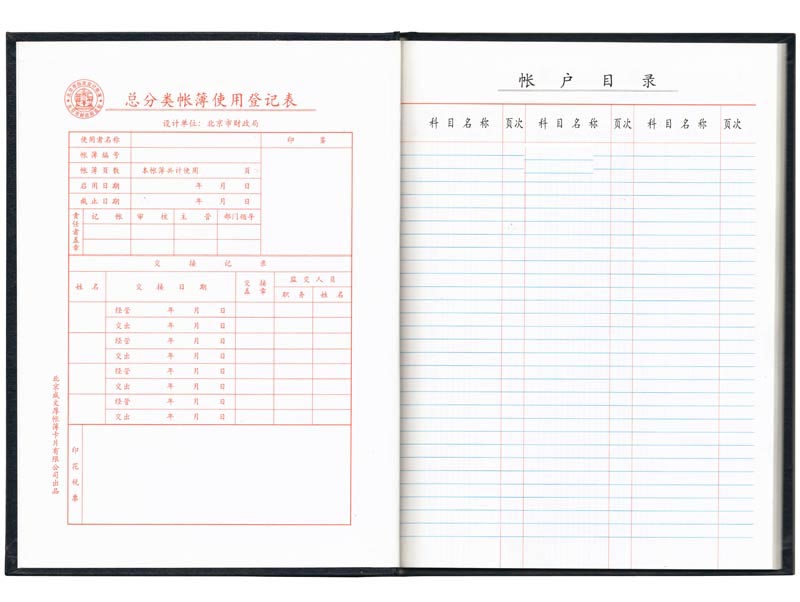 总分类帐簿使用登记表
设计单位：北京市财政局
使用者名称 印鉴
帐簿编号
帐簿页数 本帐簿共计使用 页
启用日期 年 月 日
截止日期 年 月 日
责任者盖章 记帐 审核 主管 部门领导
交接记录
姓名 交接日期 交接盖章 监交人员
职务 姓名
经管 年 月 日
交出 年 月 日
经管 年 月 日
交出 年 月 日
经管 年 月 日
交出 年 月 日
经管 年 月 日
交出 年 月 日
印花税票
北京成文厚帐簿卡片有限公司出品
帐户目录
科目名称 页次 科目名称 页次 科目名称 页次